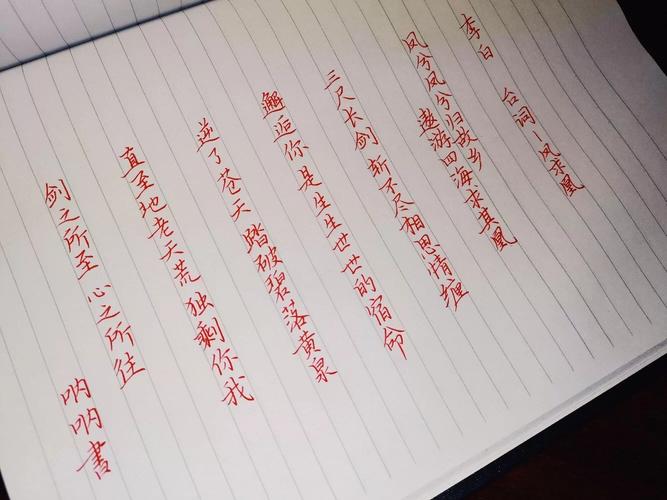 李白 台词-凤求凰
凤兮凤兮归故乡
遨游四海求其凰
三尺长剑 斩不尽相思情缠
邂逅你 是生生世世的宿命
逆了苍天 踏破碧落黄泉
直至地老天荒 独剩你我
剑之所至 心之所往
呐呐書